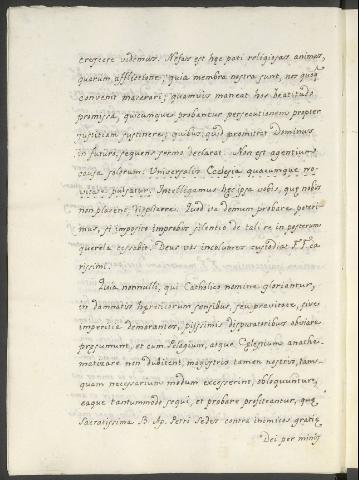 crescere videmus. Nefas est hęc pati religiosas animas,
quarum afflictione; quia membra nostra sunt, nos quoq;
convenit macerari; quamvis maneat hos beatitudo
promissa, quicunque probantur persecutionem propter
justitiam sustinere; quibus quid promittat Dominus
in futuro, sequens sermo declarat. Non est agentium
causa solorum: Universalis Ecclesia quacunque no=
vitate pulsatur. Intelligamus hęc ipsa vobis, quę nobis
non placent, displicere. Quod ita demum probare poteri=
mus, si imposito improbis silentio de tali re in posterum
querela cessabit. Deus vos incolumes custodiat FF. ca=
rissimi.
Quia nonnulli, qui Catholico nomine gloriantur,
in damnatis hęreticorum sensibus, seu pravitate, sive
imperitia demorantes, piissimis disputatoribus obviare
pręsumunt, et cum Pelagium, atque Cęlestium anathe=
matizare non dubitent, magistris tamen nostris, tam=
quam necessarium modum excesserint, obloquuntur,
eaque tantummodo sequi, et probare profiteantur, quę
Sacratissima B. Ap. Petri Sedes contra inimicos gratię
Dei per minis